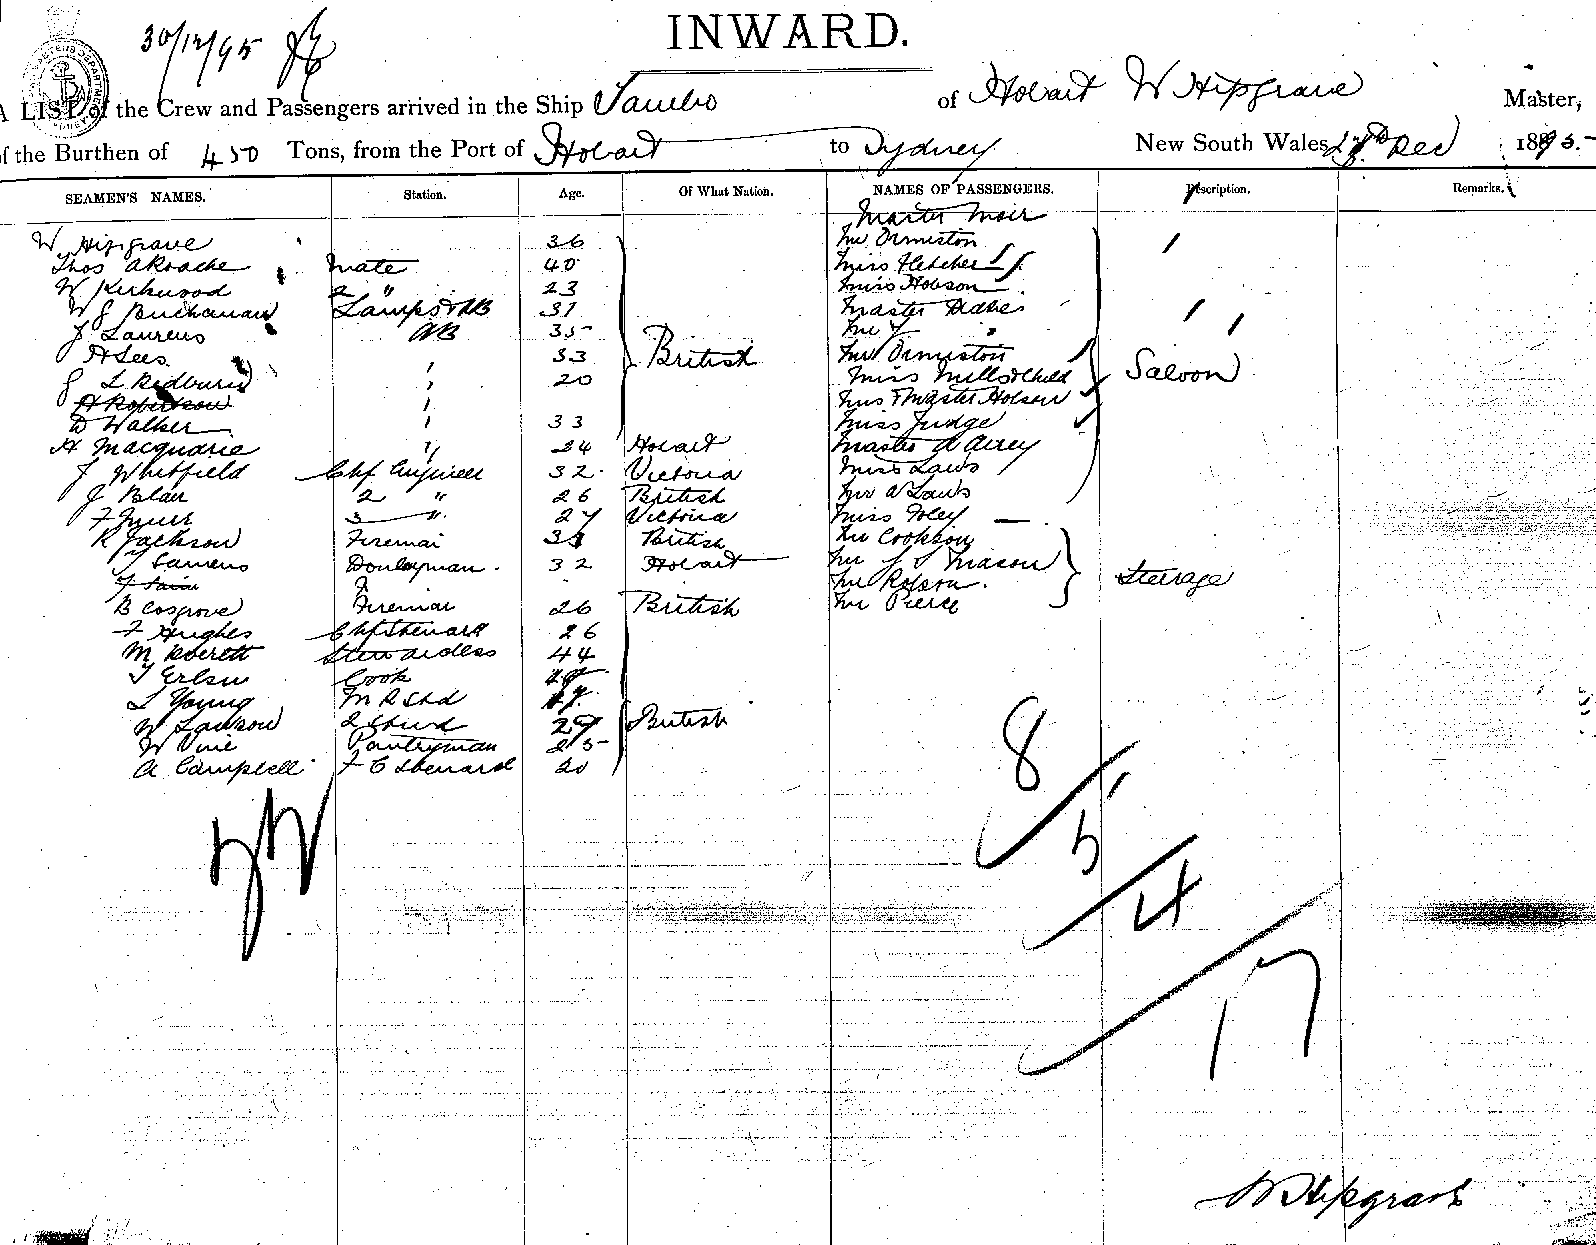 30/12/95
INWARD.
A LIST of the Crew and Passengers arrived in the Ship Tambo of Hobart W Hipgrave Master,
of the Burthen of 450 Tons, from the Port of Hobart to Sydney New South Wales Dec 1895
SEAMEN'S NAMES. Station. Age. Of What Nation. NAMES OF PASSENGERS. Description. Remarks.
Master Moir
W Hipgrave 36 Mr Ormiston
Thos A Roache Mate 40 Miss Fletcher
W Kirkwood 2 " 23 Miss Hobson
W J Buchanan Lamps & AB 31 Master
J Laurens AB 35 Mr
A Lees " 33 British Mr Ormiston Saloon
J L Redburn " 20 Miss Mills & Child
A Robertson " Mrs & Master Hobson
D Walker " 33 Miss Judge
A Macquarie " 24 Hobart Master A Airey
J Whitfield Chf Engineer 32 Victoria Miss Laws
J Blair 2 " 26 British Mr A Laws
F 3 " 27 Victoria Miss Foley
R Jackson Fireman British Mr Cookson
J Donkeyman 32 Hobart Mr J S Mason
Mr Robson Steerage
B Cosgrove Fireman 26 British Mr Pierce
F Hughes Chf Steward 26
M Everett Stewardess 44
Cook
L Young M R Std
W Lawson 2 Stwd 29 British
W Vine Pantryman 25
A Campbell F C Steward 20
8
5
4
17
W Hipgrave